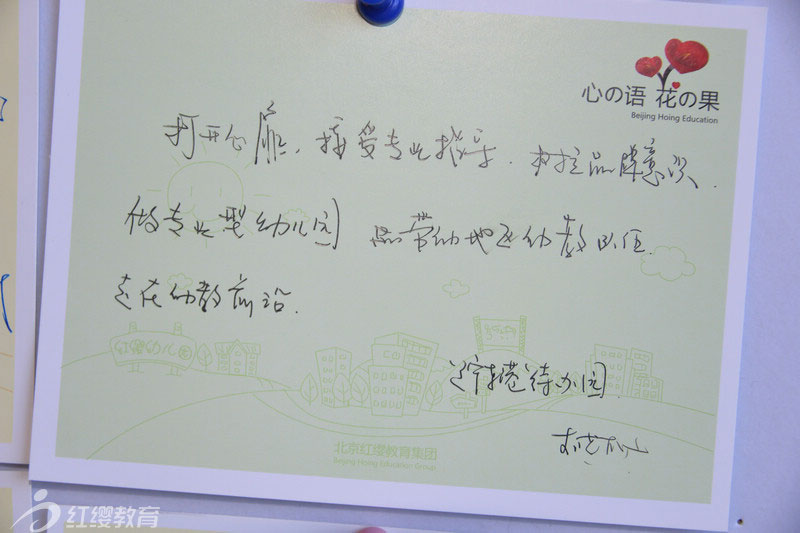 心の语 花の果
Beijing Hoing Education
打开心扉,接受专业指导.树立品牌意识.
做专业型幼儿园 带动地区幼教队伍
走在幼教前沿.
红缨幼儿园
待办园
北京红缨教育集团
Beijing Hoing Education Group
红缨教育